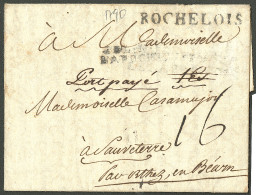 ROCHELOIS
à Mademoiselle
Port payé
Mademoiselle Casamajor
16
à Sauveterre
par orthez, en Béarn